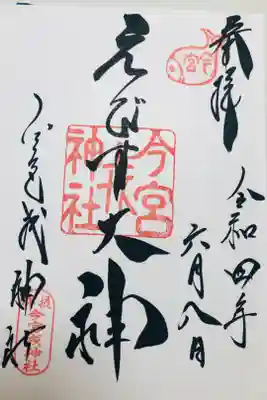 奉拝
令和四年
六月八日
えびす大神
今宮戎神社
今宮戎神社
今宮戎神社